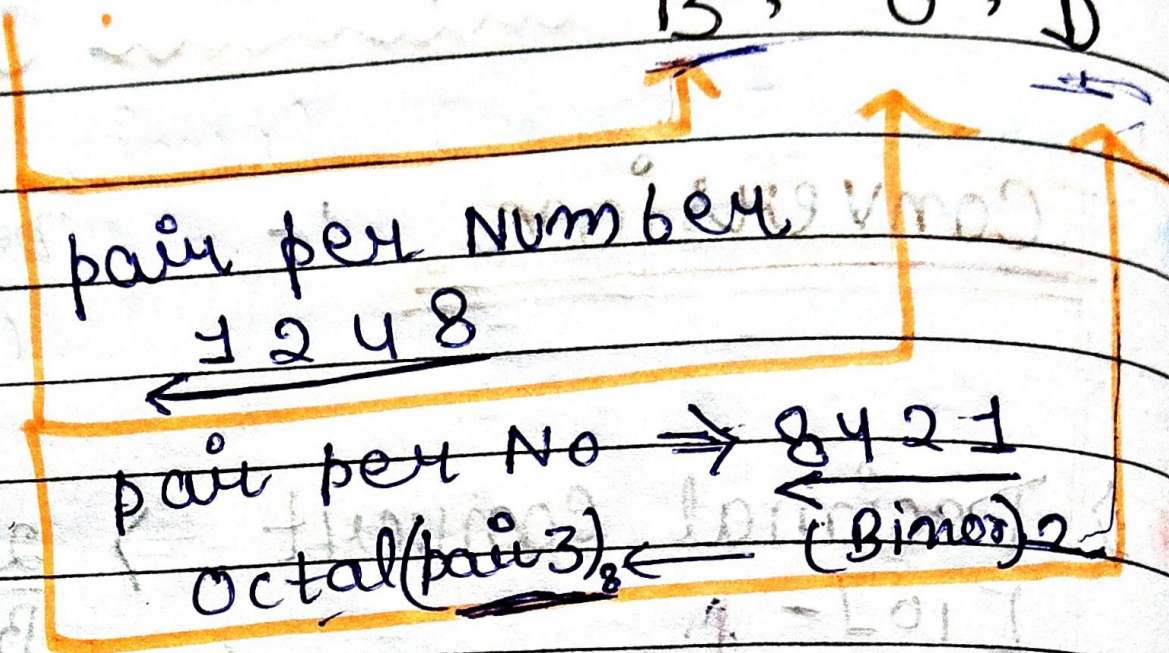 B, O, D
pair per Number
1 2 4 8
pair per No ⇒ 8 4 2 1
Octal(pair 3)₈ ← (Binor)2